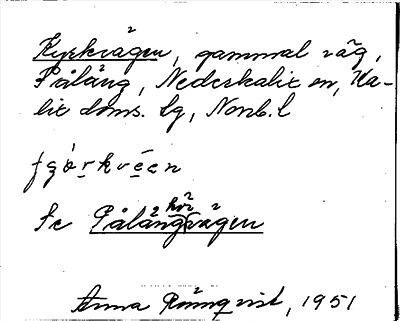 Kyrkvägen, gammal väg,
Påläng, Nederkalix sn, Ka-
lix doms. lg, Nonb. l
Se Pålängsvägen
Anna Rönnqvist, 1951